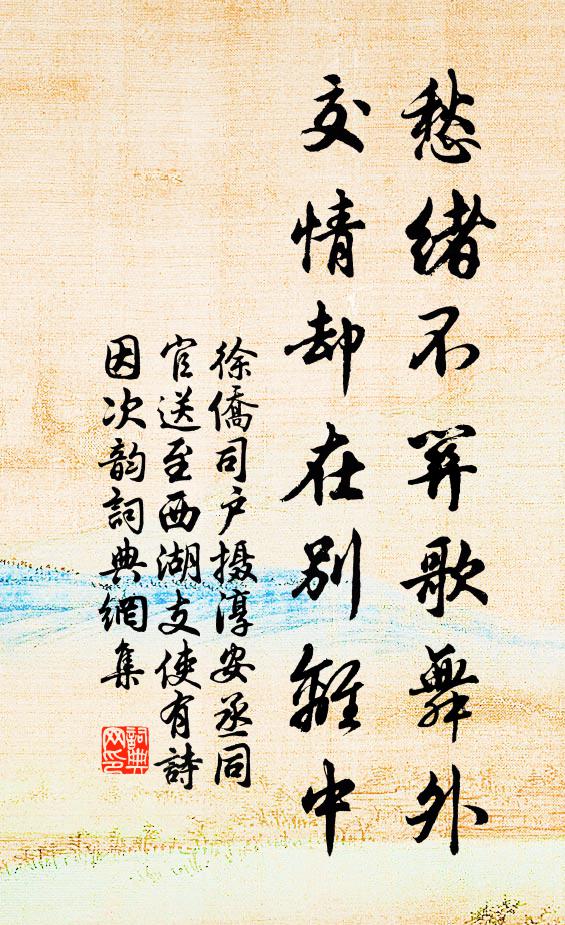 愁緒不關歌舞外
交情却在別離中
徐僑司户攝淳安丞同
官送至西湖支使有詩
因次韵詞典網集
詞典网印